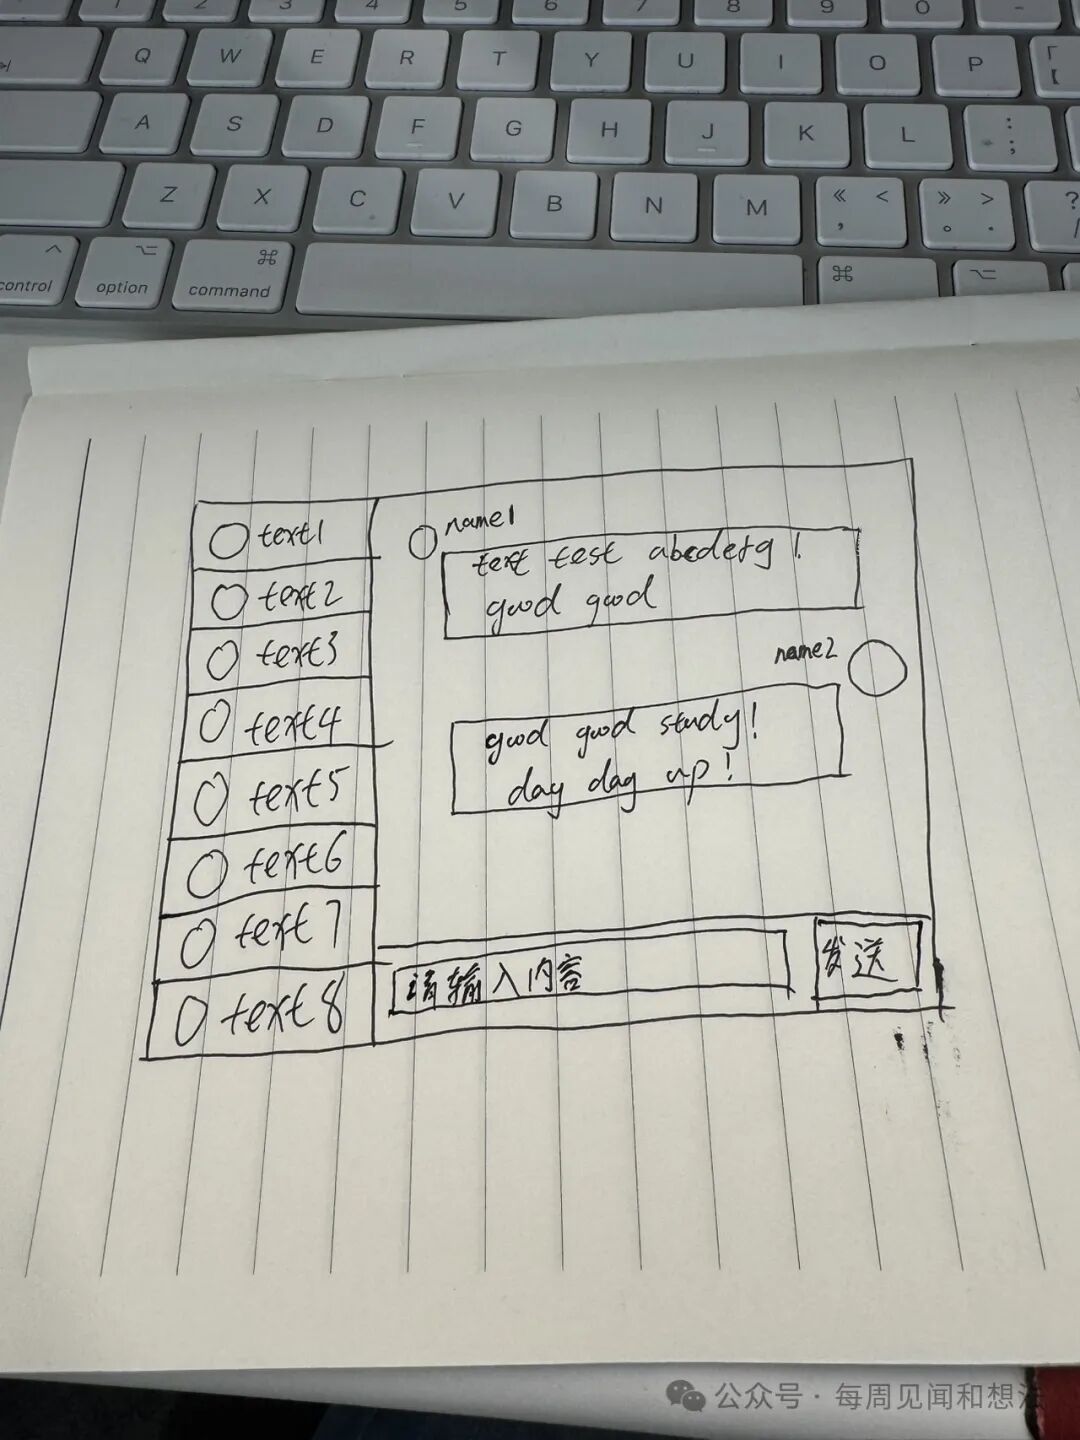 1 2 3 4 5 6 7 8 9 0 -
Q W E R T Y U I O P 「 【
A S D F G H J K L : ;
Z X C V B N M 《 < , 》 > 。 . ? /
control option command
text1
text2
text3
text4
text5
text6
text7
text8
name1
text test abcdefg!
good good
name2
good good study!
day day up!
请输入内容
发送
公众号 · 每周见闻和想法